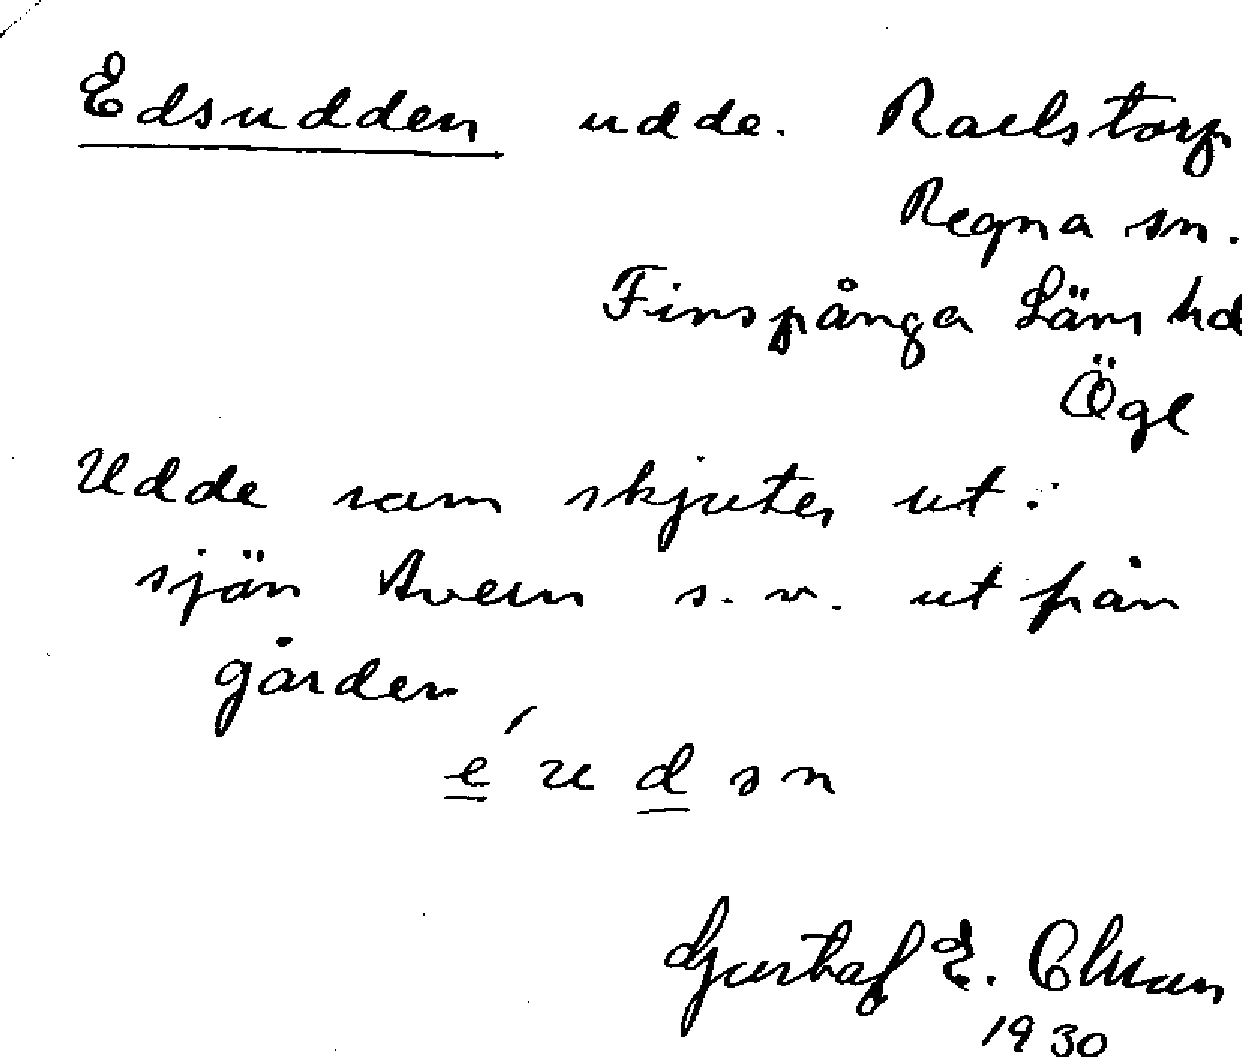 Edsudden udde. Raelstorp
Regna sn.
Finspånga Läns hd
Ögl
Udde som skjuter ut i
sjön Avern s.v. ut från
gården
Gustaf E.
1930